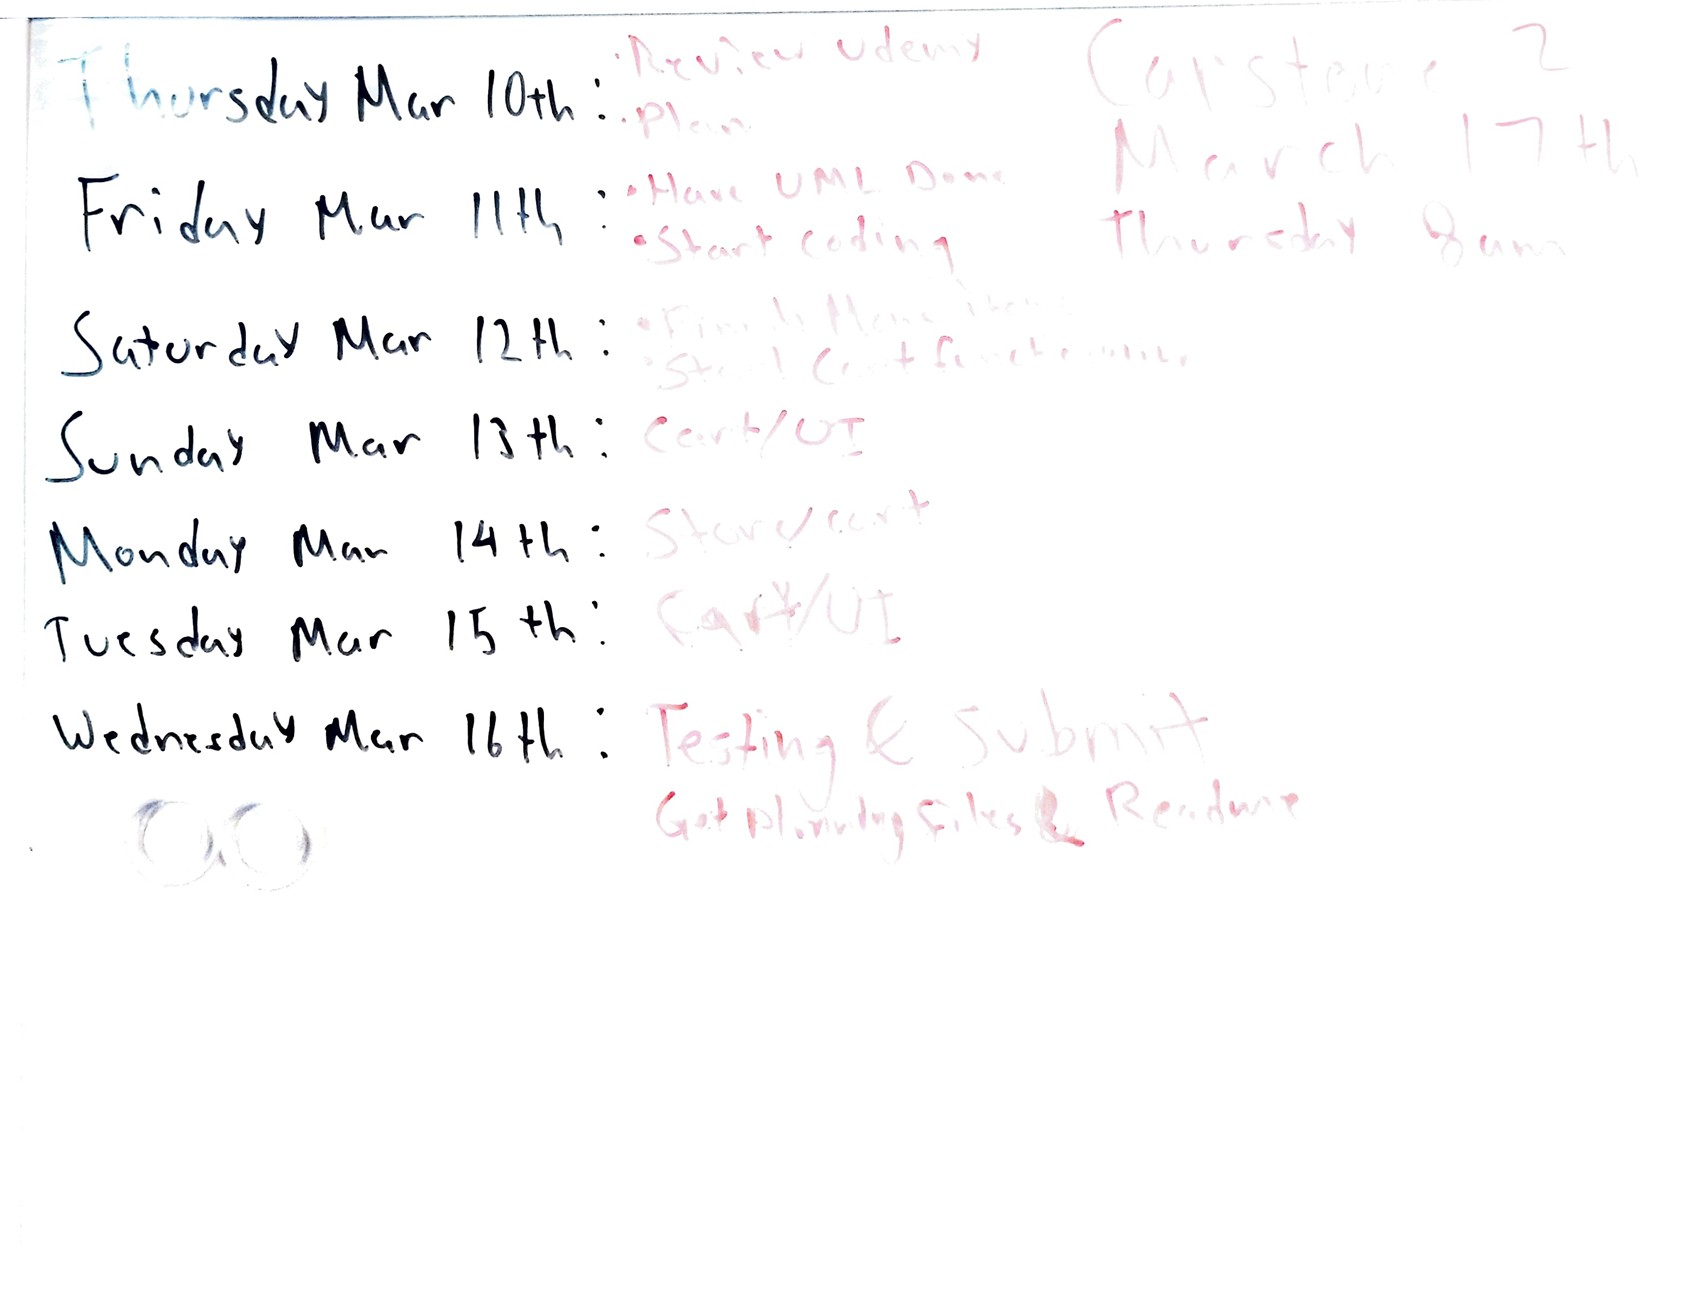 Thursday Mar 10th: • Review Udemy
• Plan
Friday Mar 11th: • Have UML Done
• Start coding
Saturday Mar 12th: • Finish Menu items
• Start Cart functions
Sunday Mar 13th: Cart/UI
Monday Mar 14th: Store/cart
Tuesday Mar 15th: Cart/UI
Wednesday Mar 16th: Testing & Submit
Get planning files & Readme
Capstone 2
March 17th
Thursday 8am